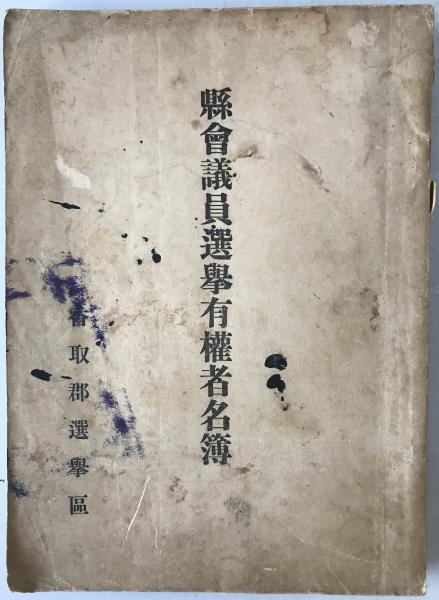 縣會議員選擧有權者名簿
香取郡選擧區